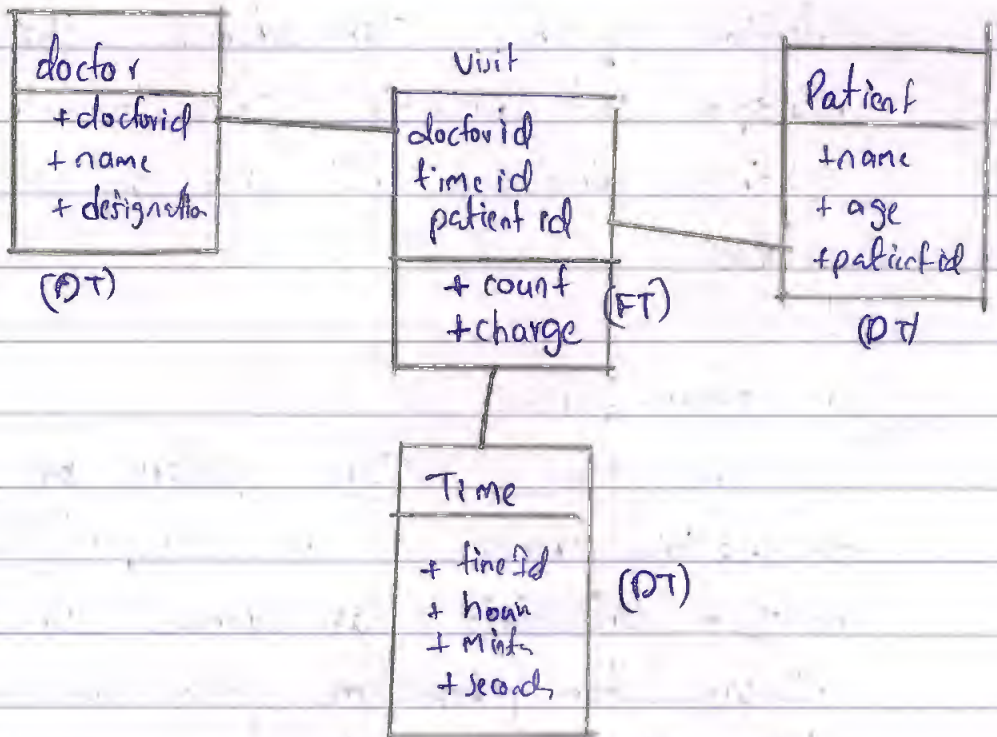 doctor
+doctorid
+ name
+ designation
(DT)
Visit
doctorid
time id
patient id
+ count
+charge
(FT)
Patient
+name
+ age
+patient id
(DT)
Time
+ time id
+ hour
+ second
(DT)